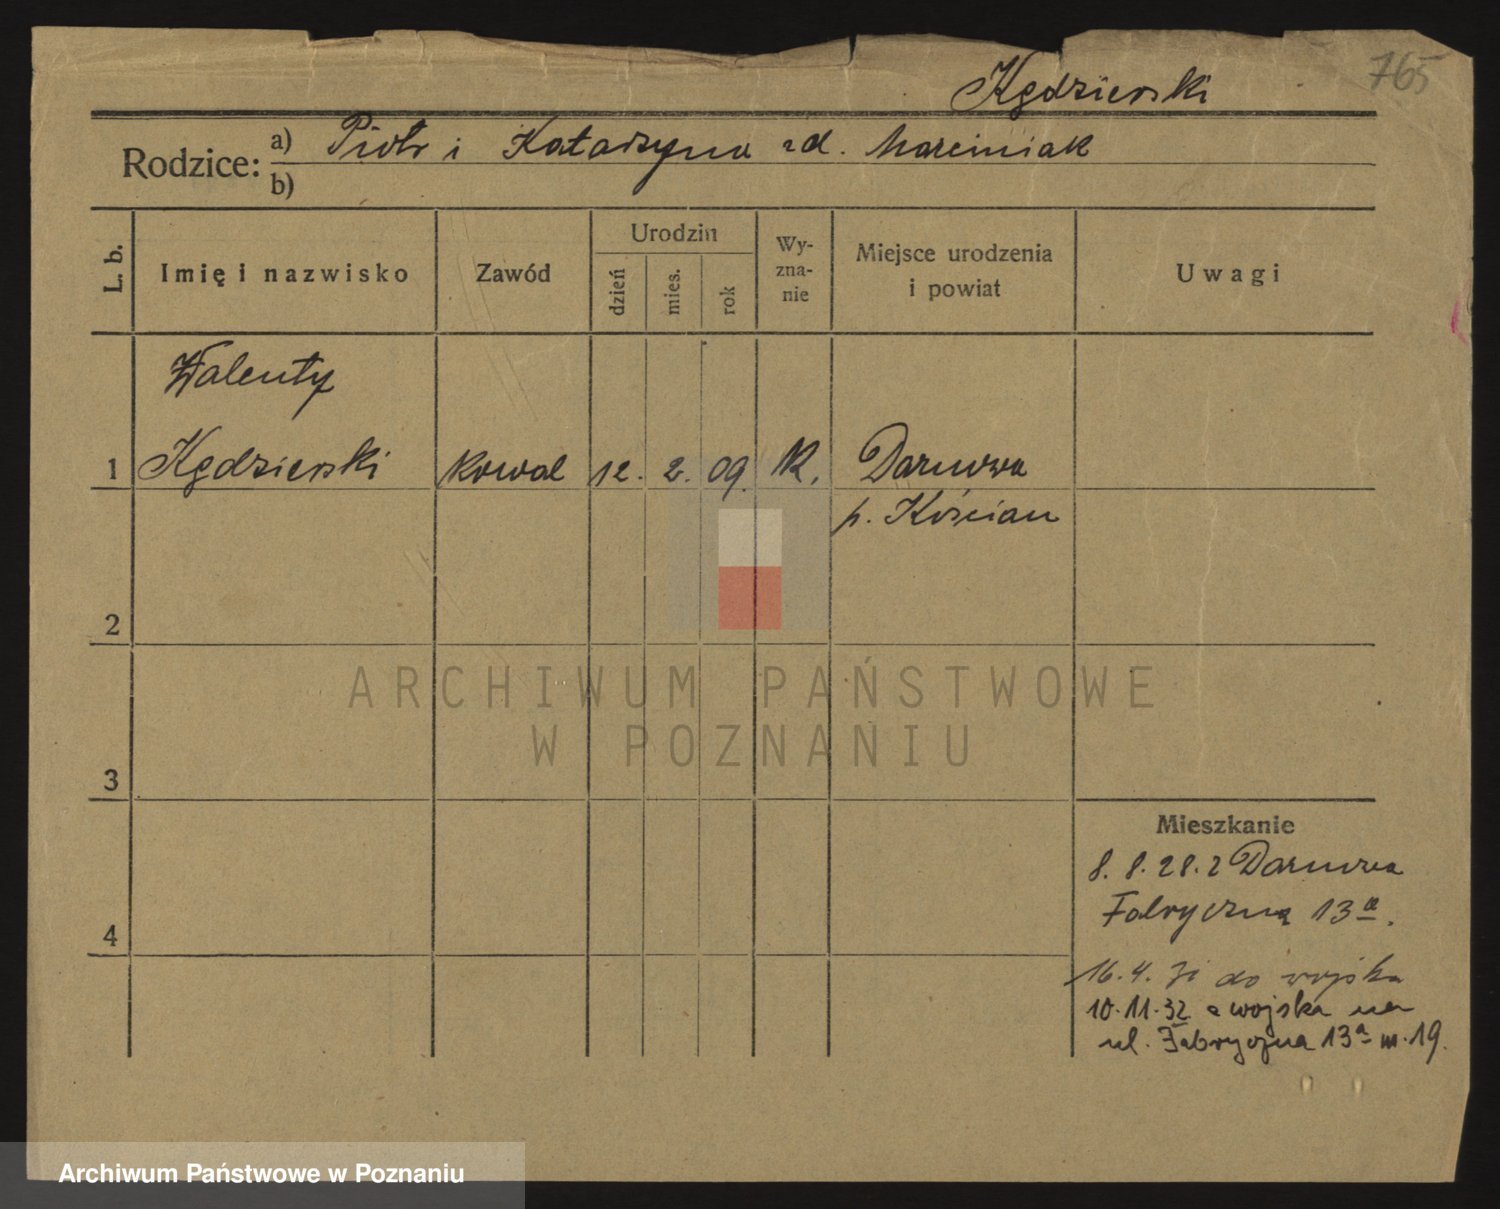 765
Kędzierski
Rodzice: a) Piotr i Katarzyna zd. Marciniak
b)
L. b.
Imię i nazwisko
Zawód
Urodzin
dzień
mies.
rok
Wy-
zna-
nie
Miejsce urodzenia
i powiat
Uwagi
Walenty
1 Kędzierski kowal 12. 2. 09. K.
p. Kościan
2
ARCHIWUM PAŃSTWOWE
W POZNANIU
3
Mieszkanie
8. 8. 28. z
Fabryczna 13a.
4
16. 4. do wojska
10.11.32 z wojska na
ul. Fabryczna 13a m. 19.
Archiwum Państwowe w Poznaniu